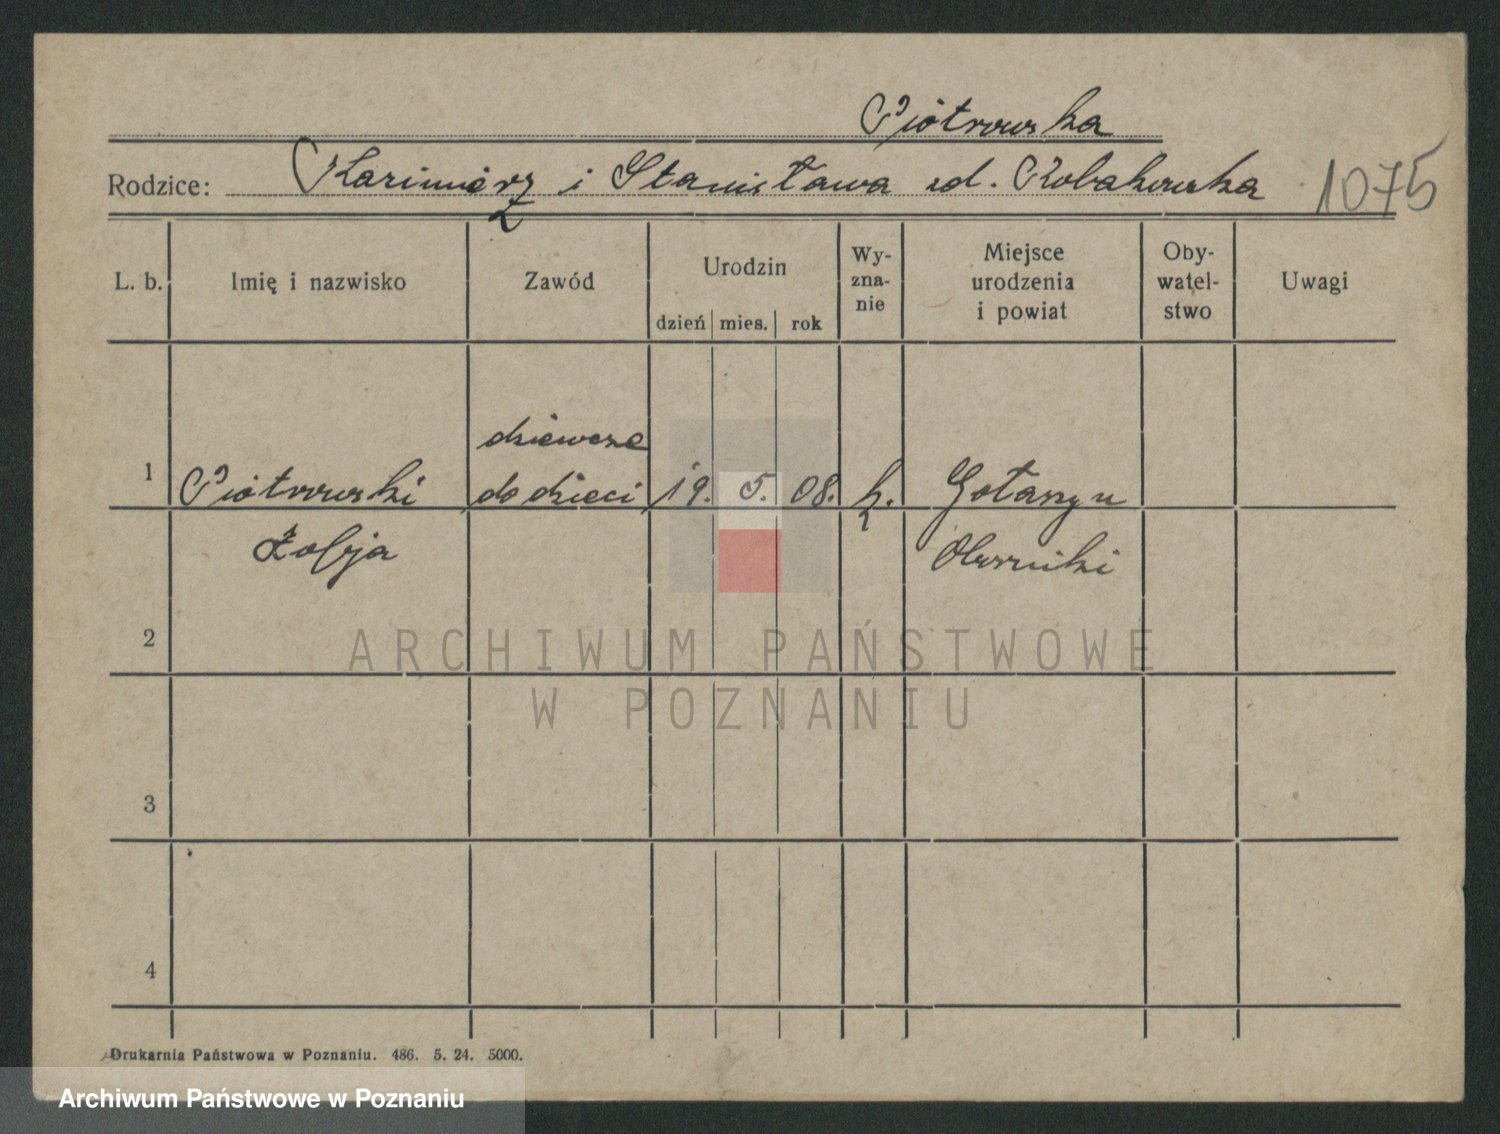 Piotrowska
Rodzice: Kazimierz i Stanisława zd. Robakowska 1075
L. b. Imię i nazwisko Zawód Urodzin dzień mies. rok Wy-zna-nie Miejsce urodzenia i powiat Oby-watel-stwo Uwagi
dziewczę
1 Piotrowski do dzieci 19. 5. 08. k. Gołaszyn
Zofja Oborniki
2
ARCHIWUM PAŃSTWOWE
W POZNANIU
3
4
Drukarnia Państwowa w Poznaniu. 486. 5. 24. 5000.
Archiwum Państwowe w Poznaniu